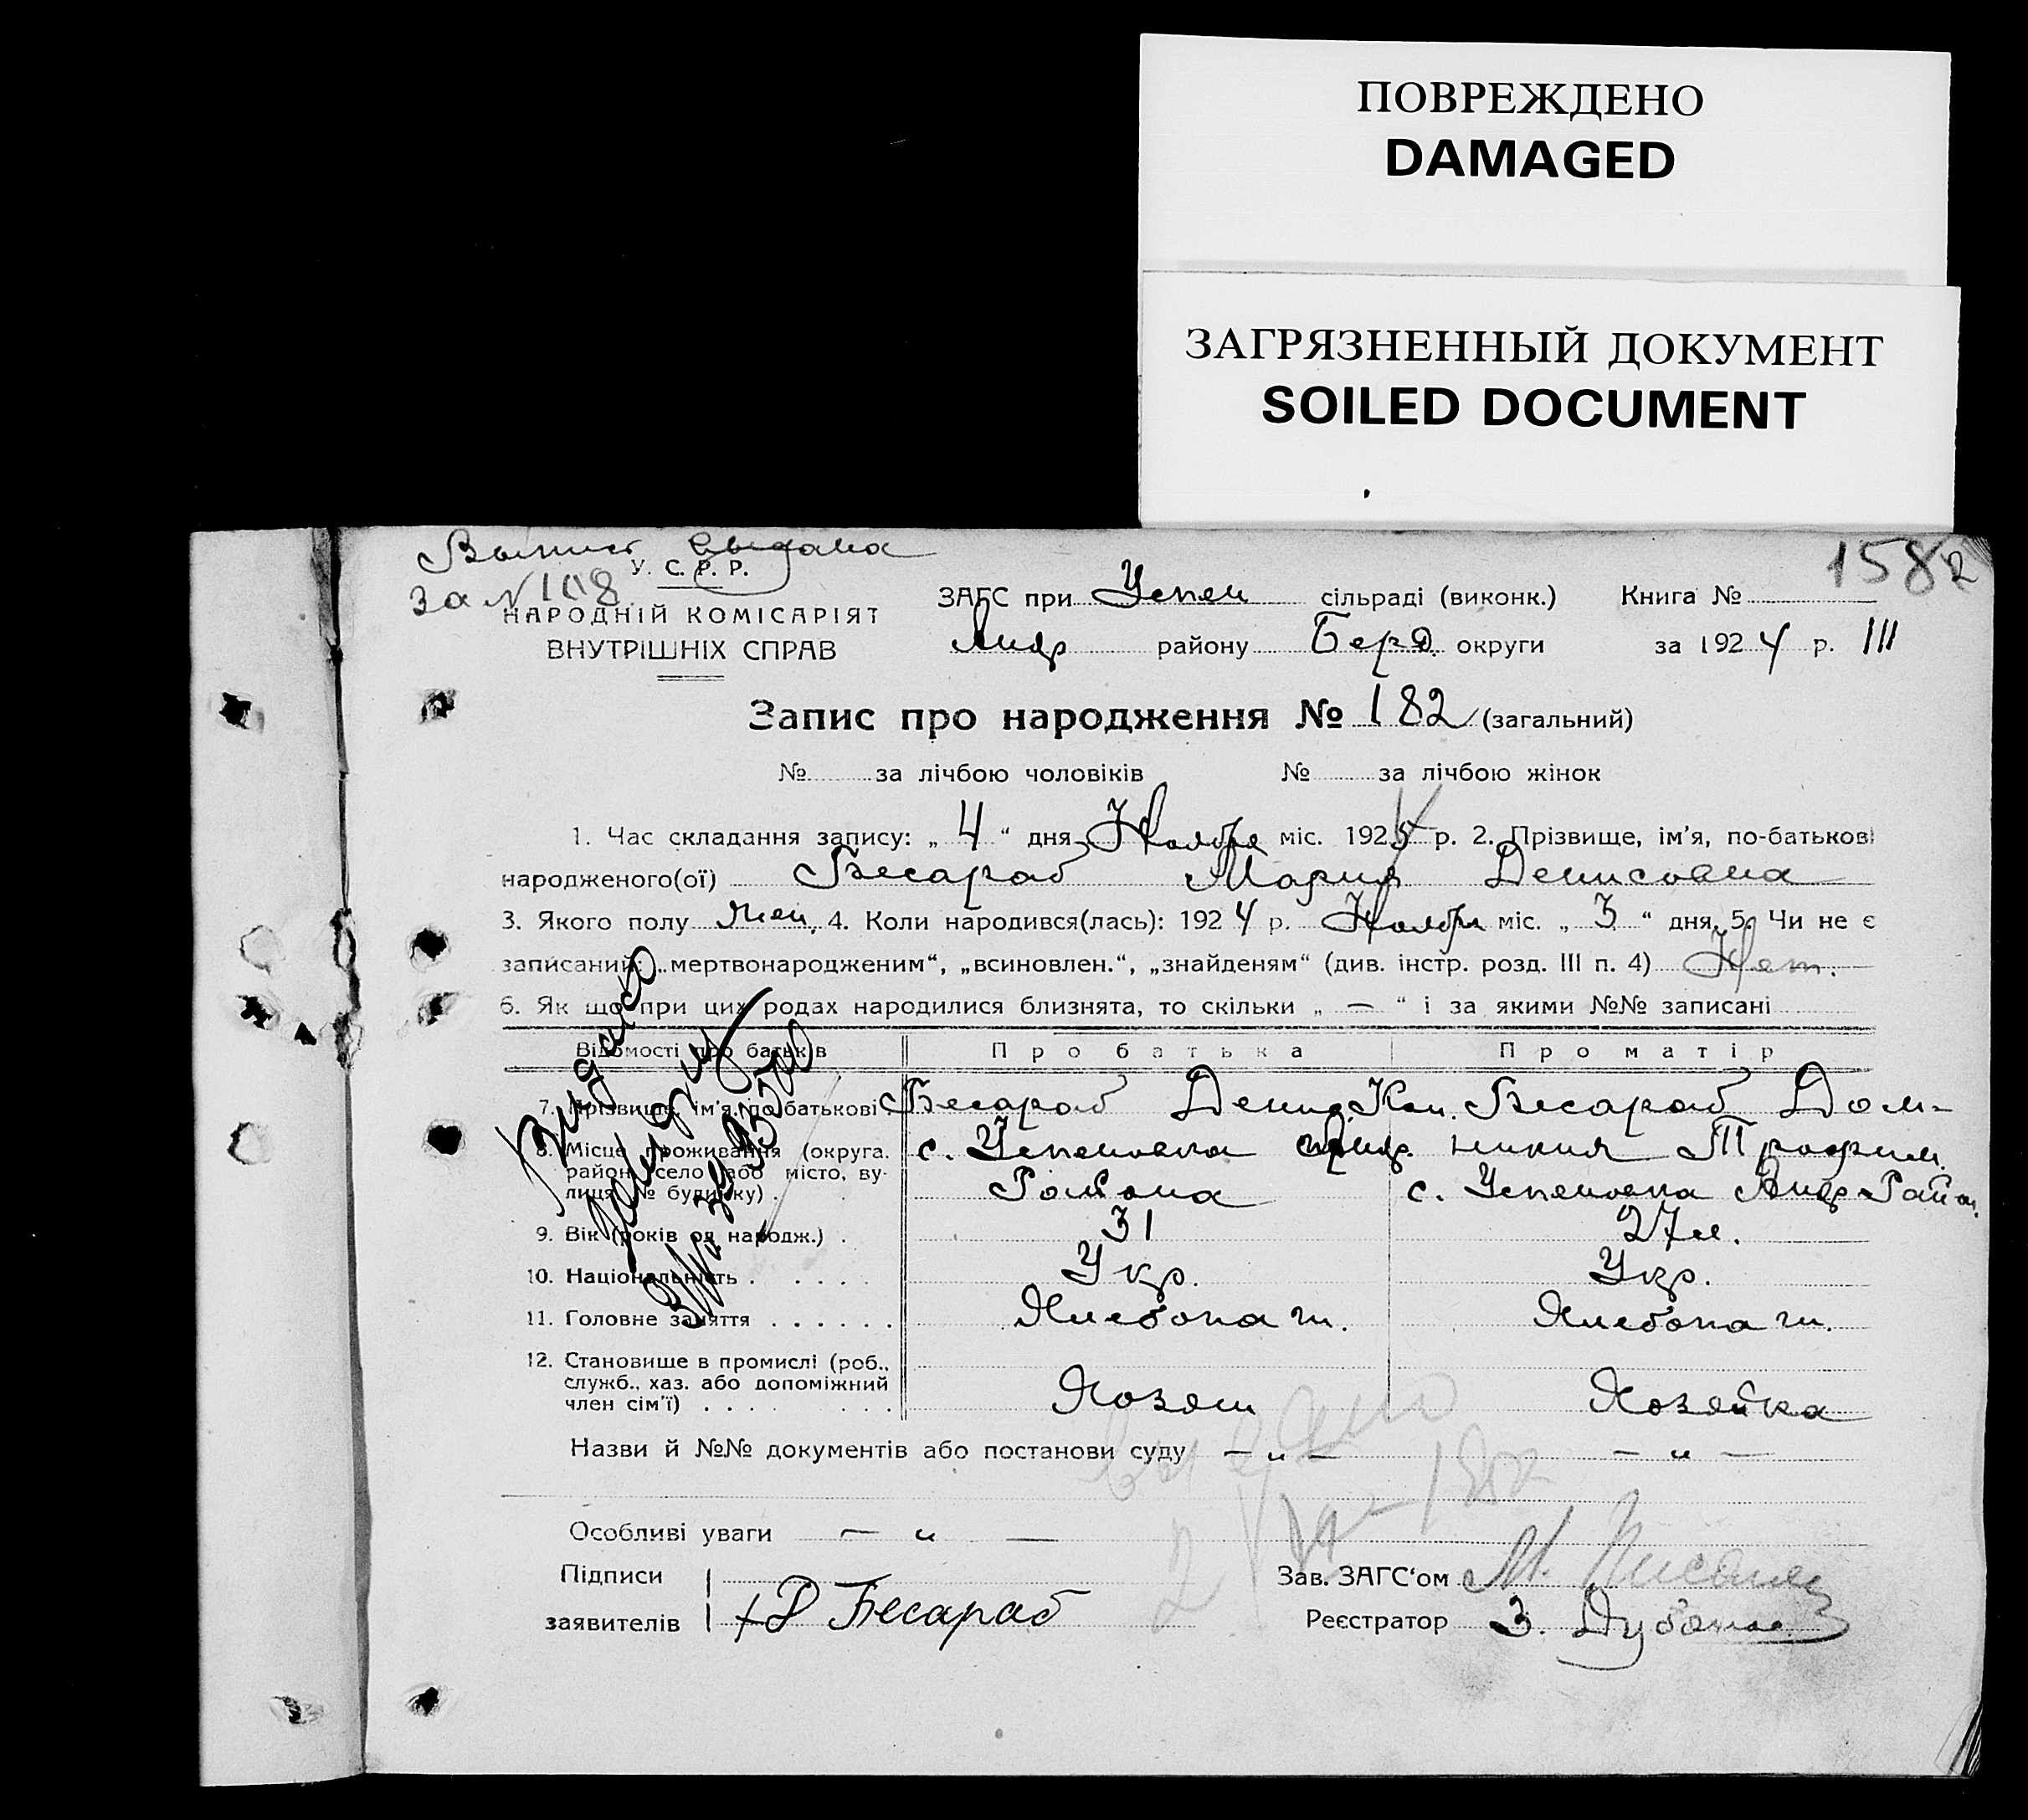 ПОВРЕЖДЕНО
DAMAGED
ЗАГРЯЗНЕННЫЙ ДОКУМЕНТ
SOILED DOCUMENT
Выпись выдана
за №108
1582
У. С. Р. Р.
НАРОДНІЙ КОМІСАРІЯТ
ВНУТРІШНІХ СПРАВ
ЗАГС при Успен сільраді (виконк.) Книга №
Андр району Берд. округи за 1924 р. III
Запис про народження № 182 (загальний)
№ за лічбою чоловіків № за лічбою жінок
1. Час складання запису: „ 4 “ дня Ноября міс. 192 р. 2. Прізвище, ім'я, по-батькові
народженого(ої) Бесараб Мария Денисовна
3. Якого полу жен. 4. Коли народився(лась): 1924 р. Ноября міс. „ 3 “ дня, 5. Чи не є
записаний: „мертвонародженим“, „всиновлен.“, „знайденям“ (див. інстр. розд. III п. 4) Нет.
6. Як що при цих родах народилися близнята, то скільки „ — “ і за якими №№ записані
Відомості про батьків Про батька Про матір
7. Прізвище, ім'я, по батькові Бесараб Денис Бесараб Дом-
никия Трофим.
8. Місце проживання (округа. район, село або місто, ву- лиця, № будинку) . с. Успеновка Андр. Района с. Успеновка Андр Район.
9. Вік (років од народж.) . 31 27 л.
10. Національність . . . . . Укр. Укр.
11. Головне заняття . . . . . . Хлебопаш. Хлебопаш.
12. Становище в промислі (роб., служб., хаз. або допоміжний член сім'ї) . . . . . . . Хозяин Хозяйка
Назви й №№ документів або постанови суду — „ — — „ —
Особливі уваги — „ —
Підписи
заявителів Д Бесараб
Зав. ЗАГС‘ом
Реєстратор З.
выдано